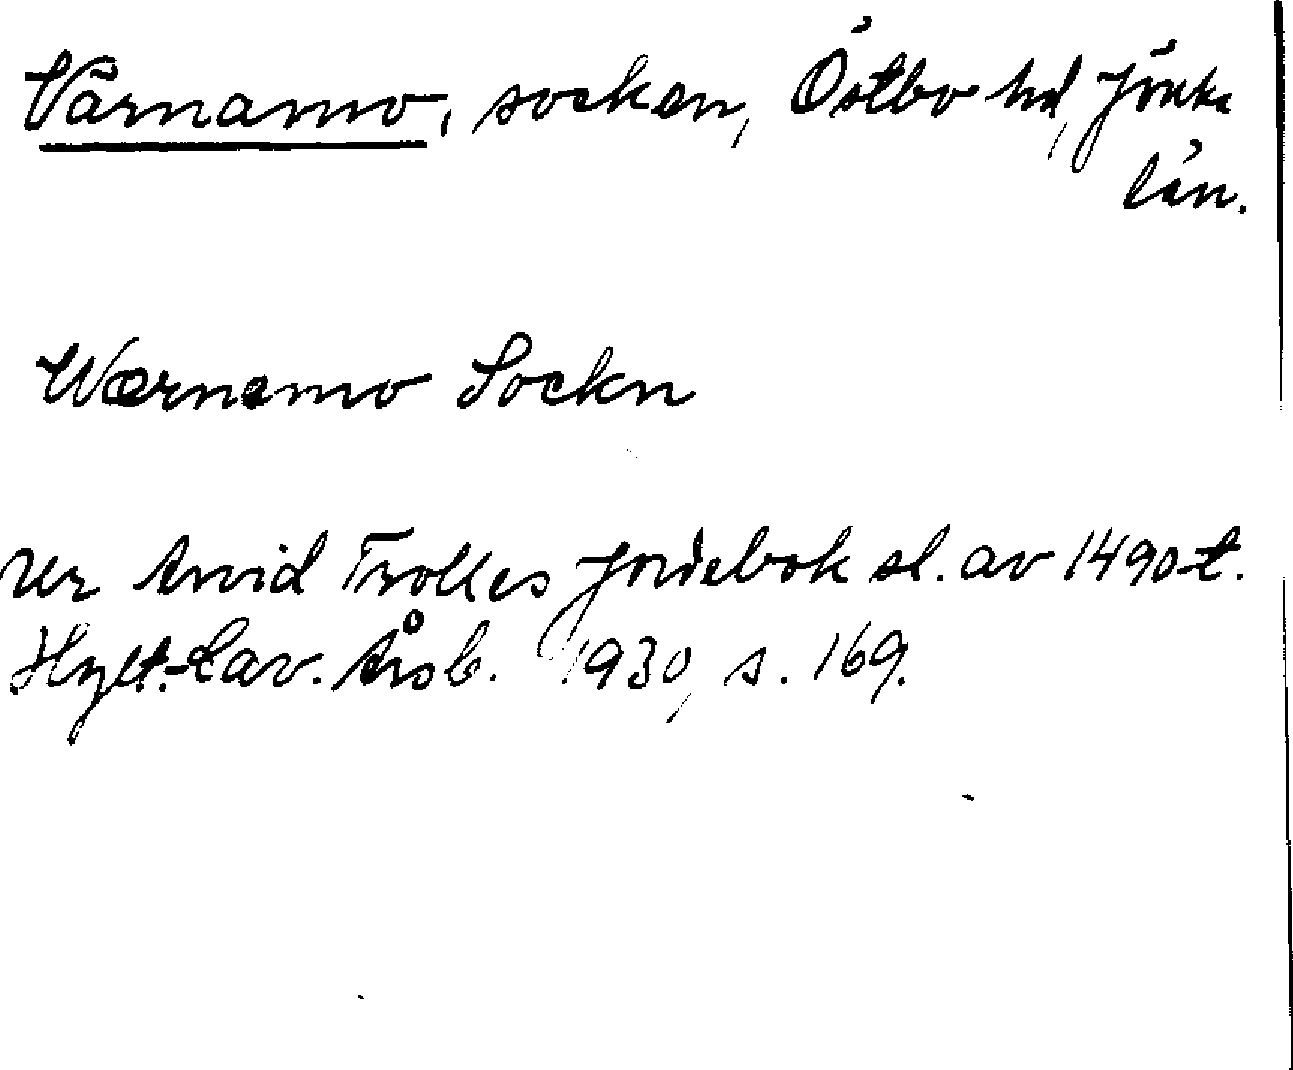 Värnamo, socken, Östbo hd, Jönk.
län.
Wærnamo Sockn
Ur Arvid Trolles Jordebok sl. av 1490-t.
Hylt.-Cav. Årsb. 1930, s. 169.